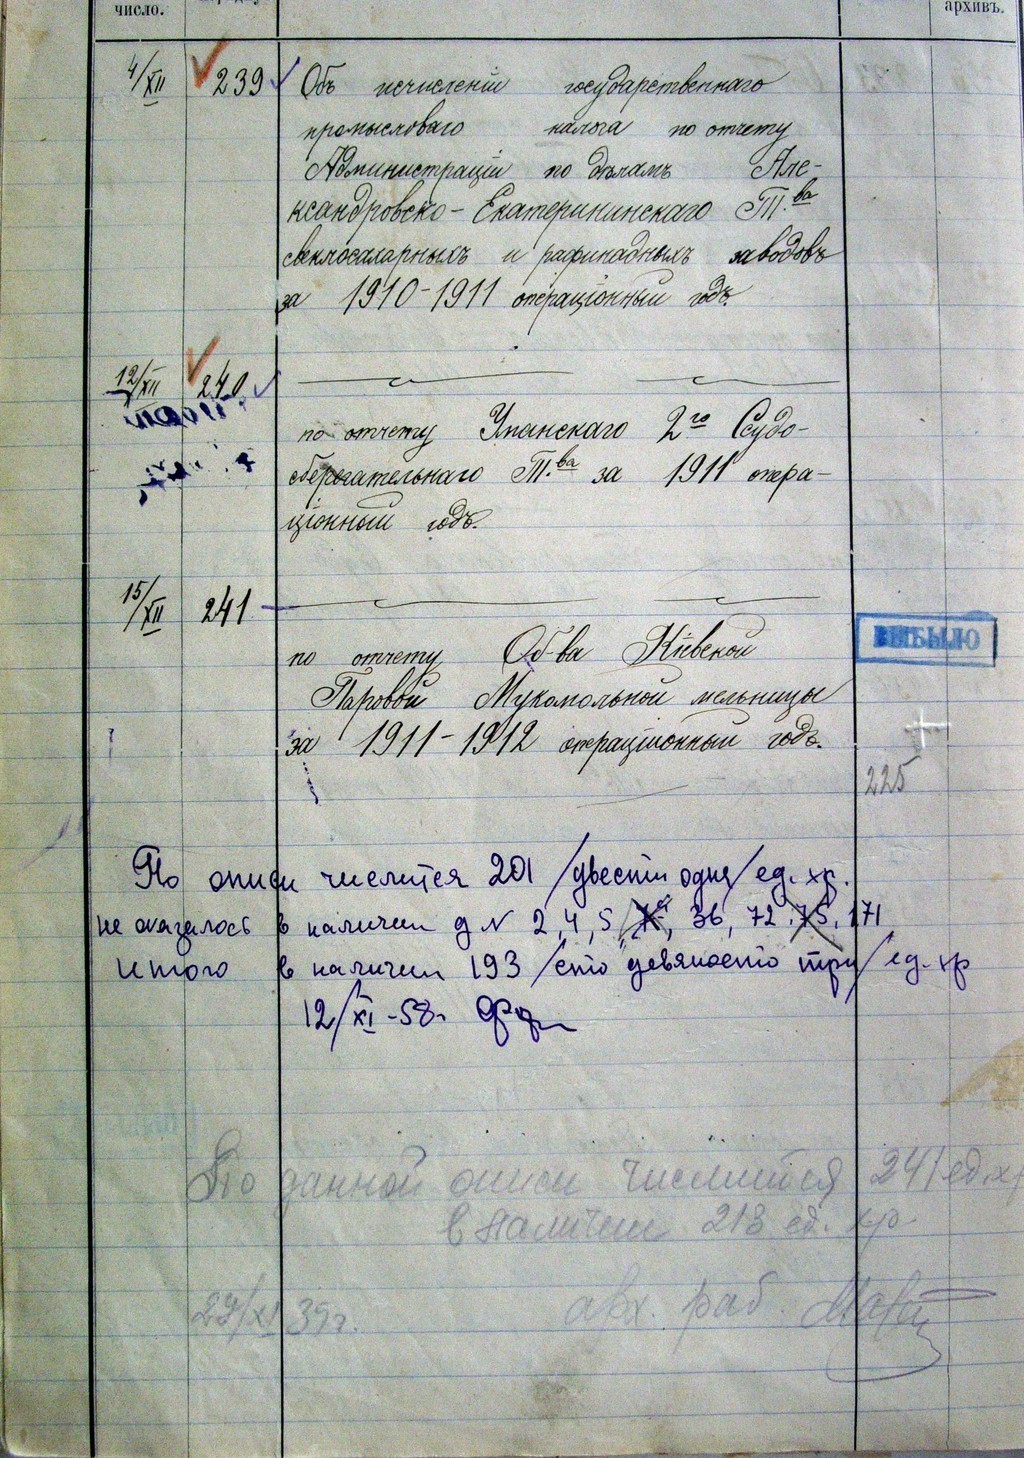 число.
архивъ.
4/XII 239 Объ исчисленіи государственнаго
промысловаго налога по отчету
Администраціи по дѣламъ Але-
ксандровско-Екатерининскаго Т.ва
свеклосахарныхъ и рафинадныхъ заводовъ
за 1910-1911 операціонный годъ.
12/XII 240
по отчету Уманскаго 2го Ссудо-
сберегательнаго Т.ва за 1911 опера-
ціонный годъ.
15/XII 241
по отчету Об-ва Кіевской
ВЫБЫЛО
Паровой Мукомольной мельницы
за 1911-1912 операціонный годъ.
225
По описи числится 201 /двести одна/ ед. хр.
не оказалось в наличии д № 2, 4, 5, 36, 72, 75, 171
итого в наличии 193 /сто девяносто три/ ед. хр
12/XI-58г.
По данной описи числится 241 ед. хр
в наличии 213 ед. хр.
29/XI 39г. арх. раб.